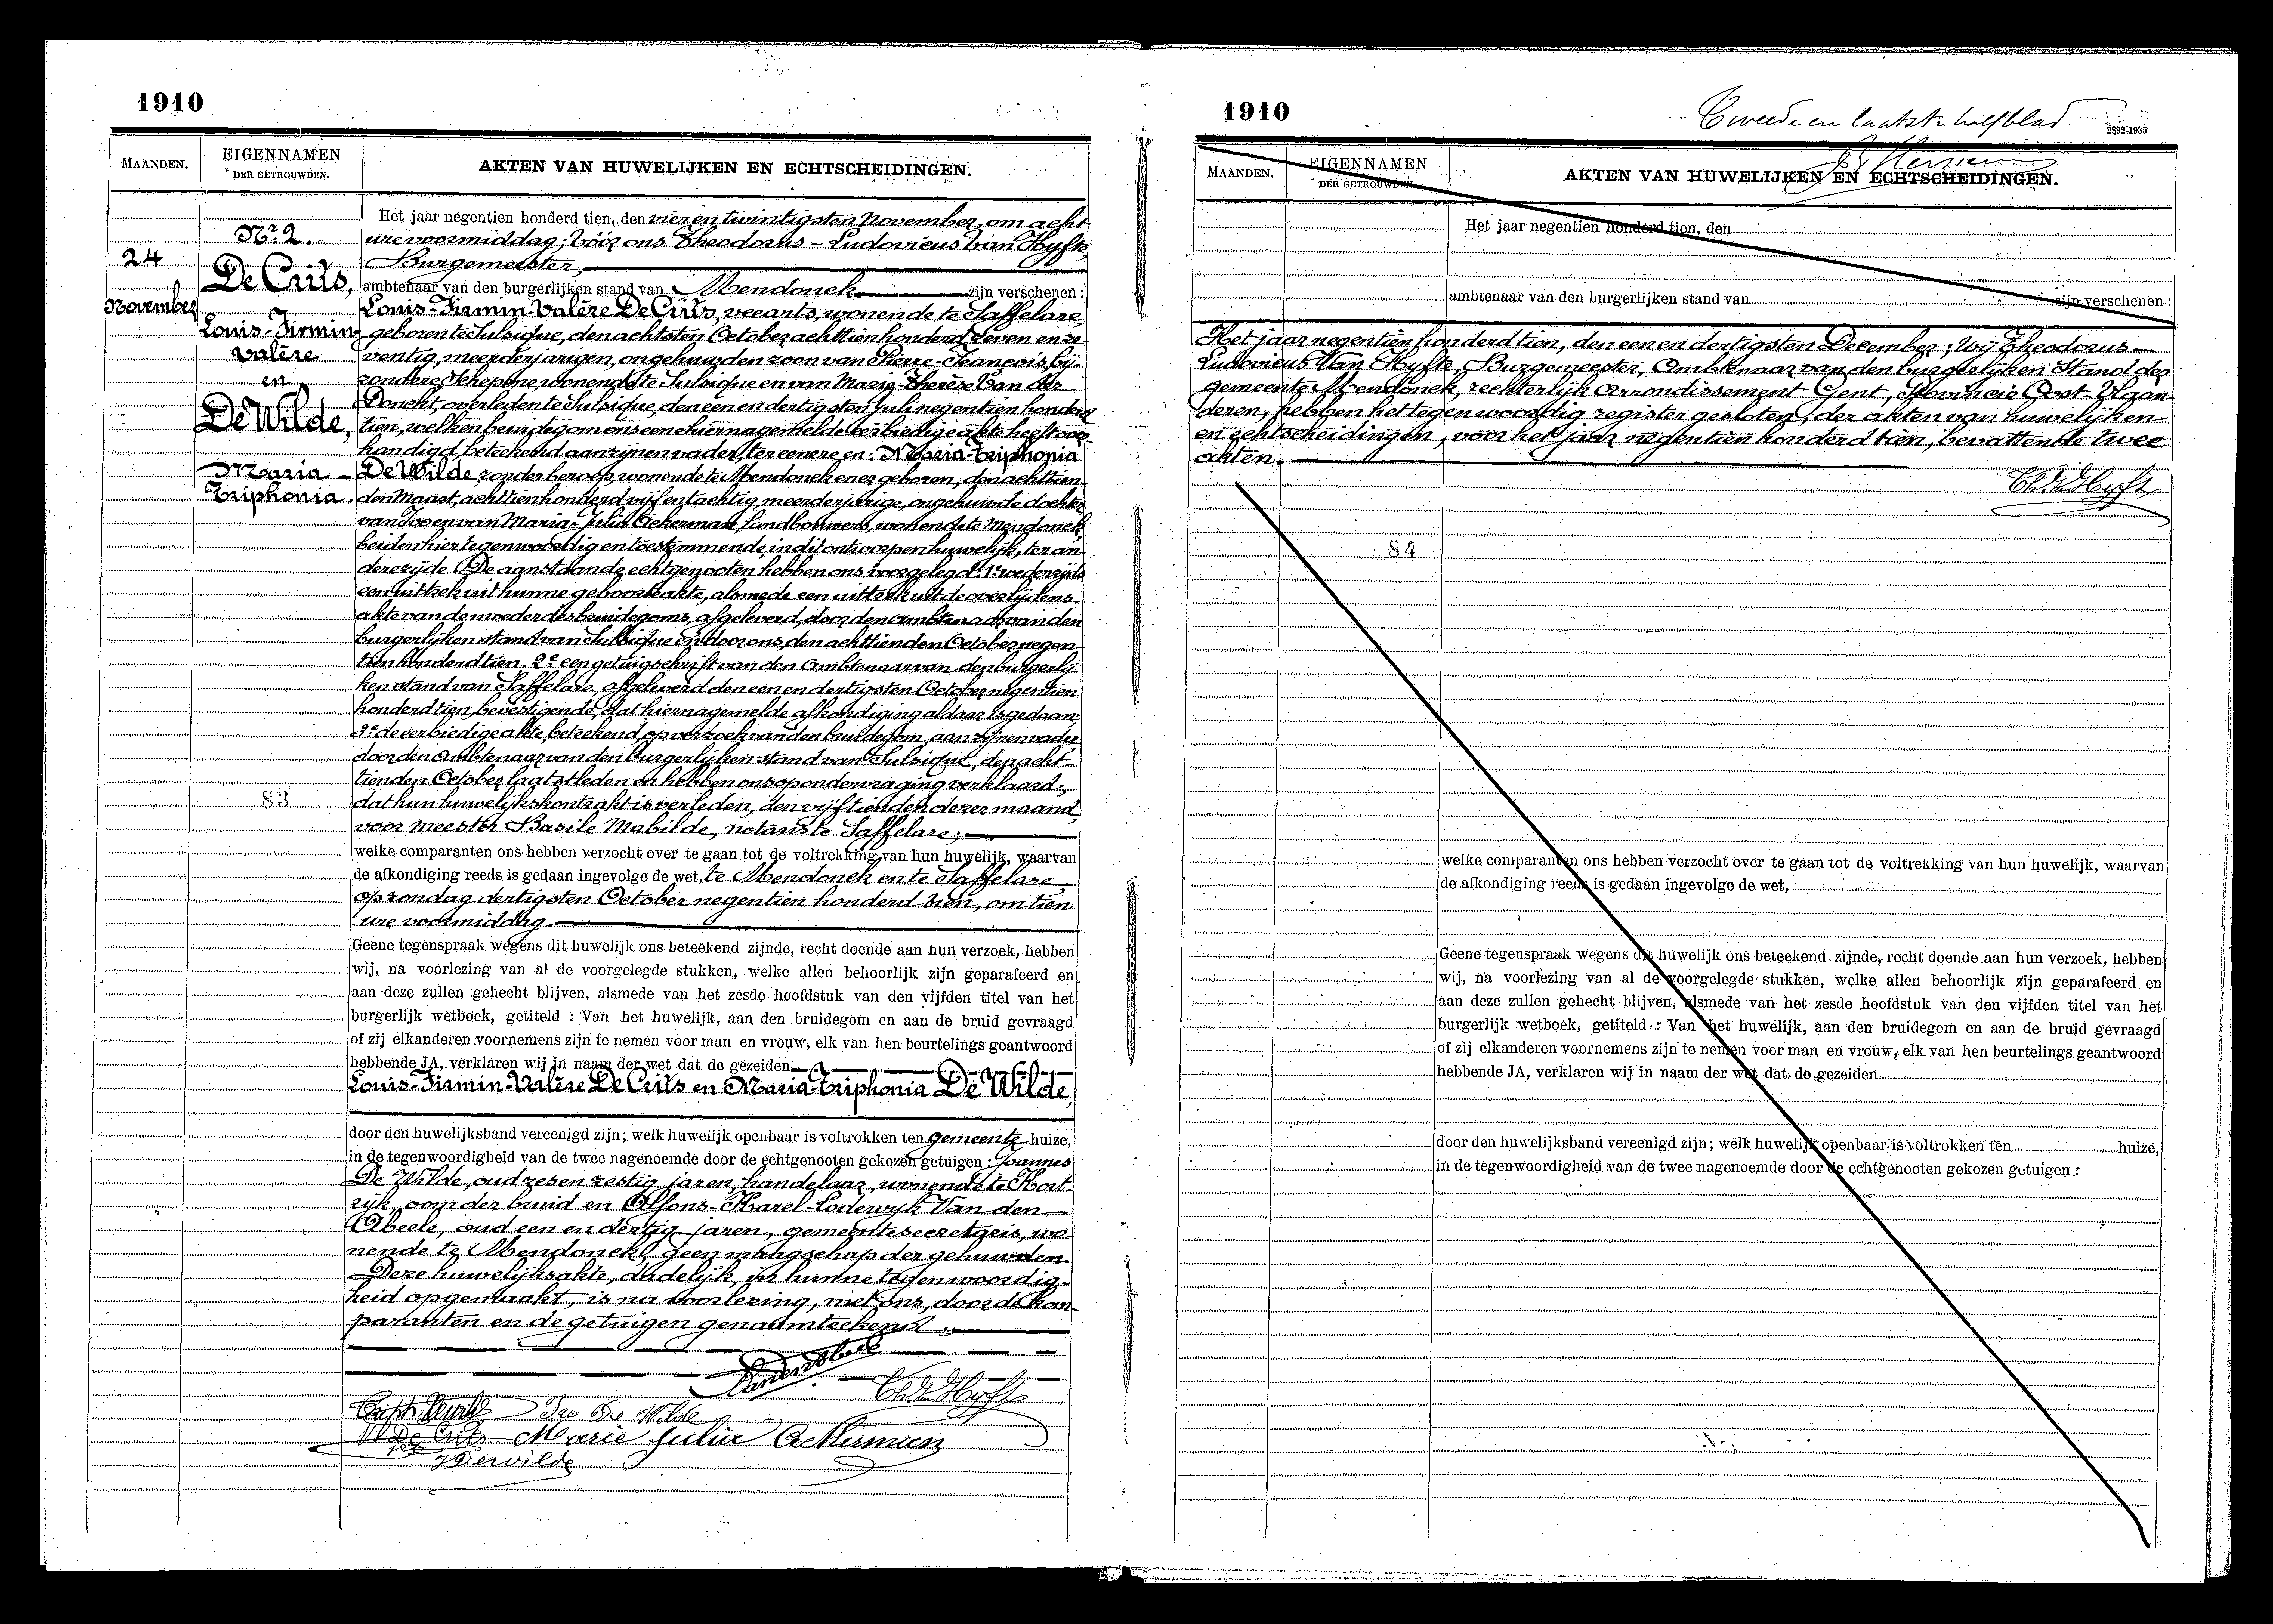 1910
MAANDEN.
EIGENNAMEN
DER GETROUWDEN.
AKTEN VAN HUWELIJKEN EN ECHTSCHEIDINGEN.
24
November
Nr. 2.
De Crits,
Louis-Firmin-
Valère
en
De Wilde,
Maria-
Triphonia.
83
Het jaar negentien honderd tien, den vier en twintigsten November, om acht
ure voormiddag; vóór ons Theodorus-Ludovicus Van Hyfte,
Burgemeester,
ambtenaar van den burgerlijken stand van Mendonck zijn verschenen:
Louis-Firmin-Valère De Crits, veearts, wonende te Saffelare,
geboren te Sulsique, den achtsten October achttienhonderd zeven en ze-
ventig, meerderjarigen, ongehuwden zoon van Pierre-François, bij-
zondere, Schepene, wonende te Sulsique en van Marie-Therèse Van der
Donckt, overleden te Sulsique, den een en dertigsten Juli negentien honderd
tien, welken bruidegom ons eene hiernagemelde eerbiedige akte heeft over-
handigd, beteekend aan zijnen vader, ter eenere en: Maria-Triphonia
De Wilde, zonder beroep, wonende te Mendonck en er geboren, den achttien-
den Maart, achttienhonderd vijf en tachtig, meerderjarige, ongehuwde dochter
van Ivo en van Maria-Julia Ackerman, Landbouwers, wonende te Mendonck,
beiden hier tegenwoordig en toestemmende in dit ontworpen huwelijk, ter an-
dere zijde. De aanstaande echtgenooten hebben ons voorgelegd: 1° wederzijds
een uittreksel uit hunne geboorteakte, alsmede een uittreksel uit de overlijdens-
akte van de moeder des bruidegoms, afgeleverd, door den ambtenaar van den
burgerlijken stand van Sulsique en door ons, den achttienden October negen-
tien honderd tien. 2° een getuigschrift van den ambtenaar van den burgerlij-
ken stand van Saffelare, afgeleverd den een en dertigsten October negentien
honderd tien, bevestigende, dat hiernagemelde afkondiging aldaar is gedaan;
3° de eerbiedige akte, beteekend, op verzoek van den bruidegom, aan zijnen vader
door den ambtenaar van den burgerlijken stand van Sulsique, den acht-
tienden October laatstleden en hebben ons op ondervraging verklaard,
dat hun huwelijkskontrakt is verleden, den vijftienden dezer maand,
voor meester Basile Mabilde, notaris te Saffelare;
welke comparanten ons hebben verzocht over te gaan tot de voltrekking van hun huwelijk, waarvan
de afkondiging reeds is gedaan ingevolge de wet, te Mendonck en te Saffelare,
op zondag dertigsten October negentien honderd tien, om tien
ure voormiddag.
Geene tegenspraak wegens dit huwelijk ons beteekend zijnde, recht doende aan hun verzoek, hebben
wij, na voorlezing van al de voorgelegde stukken, welke allen behoorlijk zijn geparafeerd en
aan deze zullen gehecht blijven, alsmede van het zesde hoofdstuk van den vijfden titel van het
burgerlijk wetboek, getiteld : Van het huwelijk, aan den bruidegom en aan de bruid gevraagd
of zij elkanderen voornemens zijn te nemen voor man en vrouw, elk van hen beurtelings geantwoord
hebbende JA, verklaren wij in naam der wet dat de gezeiden
Louis-Firmin-Valère De Crits en Maria-Triphonia De Wilde,
door den huwelijksband vereenigd zijn; welk huwelijk openbaar is voltrokken ten gemeente huize,
in de tegenwoordigheid van de twee nagenoemde door de echtgenooten gekozen getuigen: Joannes
De Wilde, oud zes en zestig jaren, handelaar, wonende te Kort-
rijk, oom der bruid en Alfons-Karel-Lodewijk Van den
Abeele, oud een en dertig jaren, gemeentesecretaris, wo-
nende te Mendonck, geen maagschap der gehuwden.
Deze huwelijksakte, dadelijk, in hunne tegenwoordig-
heid opgemaakt, is na voorlezing, met ons, door de kom-
paranten en de getuigen genaamteekend.
Vanden Abeele
Th. Van Hyfte
Triph. Dewilde Ivo De Wilde
V. De Crits Marie Julia Ackerman
J Dewilde
1910
Tweede en laatste halfblad
2392-1935
MAANDEN.
EIGENNAMEN
DER GETROUWDEN.
AKTEN VAN HUWELIJKEN EN ECHTSCHEIDINGEN.
Het jaar negentien honderd tien, den
ambtenaar van den burgerlijken stand van zijn verschenen :
Het jaar negentien honderd tien, den een en dertigsten December, Wij Theodorus-
Ludovicus Van Hyfte, Burgemeester, Ambtenaar van den burgerlijken Stand der
gemeente Mendonck, rechterlijk arrondissement Gent, Provincie Oost-Vlaan-
deren, hebben het tegenwoordig register gesloten, der akten van huwelijken
en echtscheidingen, voor het jaar negentien honderd tien, bevattende twee
akten.
Th. Van Hyfte
84
welke comparanten ons hebben verzocht over te gaan tot de voltrekking van hun huwelijk, waarvan
de afkondiging reeds is gedaan ingevolge de wet,
Geene tegenspraak wegens dit huwelijk ons beteekend zijnde, recht doende aan hun verzoek, hebben
wij, na voorlezing van al de voorgelegde stukken, welke allen behoorlijk zijn geparafeerd en
aan deze zullen gehecht blijven, alsmede van het zesde hoofdstuk van den vijfden titel van het
burgerlijk wetboek, getiteld : Van het huwelijk, aan den bruidegom en aan de bruid gevraagd
of zij elkanderen voornemens zijn te nemen voor man en vrouw, elk van hen beurtelings geantwoord
hebbende JA, verklaren wij in naam der wet dat de gezeiden
door den huwelijksband vereenigd zijn; welk huwelijk openbaar is voltrokken ten huize,
in de tegenwoordigheid van de twee nagenoemde door de echtgenooten gekozen getuigen :